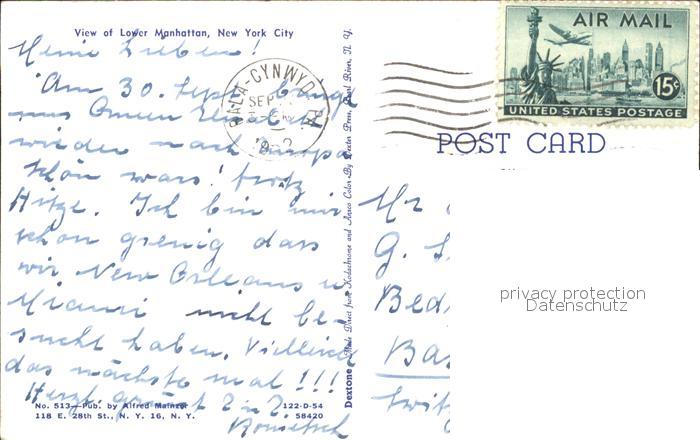 View of Lower Manhattan, New York City
Meine Lieben!
Am 30. Sept. bringt
uns Queen Elizabeth
wieder nach Europa
schön wars! trotz
Hitze. Ich bin mir
schon grenig dass
wir New Orleans u
Miami nicht be-
sucht haben. Vielleicht
das nächste mal!!!
Herzl.
No. 513—Pub. by Alfred Mainzer
118 E. 28th St., N. Y. 16, N. Y.
122-D-54
58420
BALA-CYNWYD
SEP
PA
Dextone Made Direct from Kodachrome and Ansco Color By Dexter Press, Pearl River, N. Y.
AIR MAIL
15¢
UNITED STATES POSTAGE
POST CARD
Mr
G.
Bed
Bas
privacy protection
Datenschutz